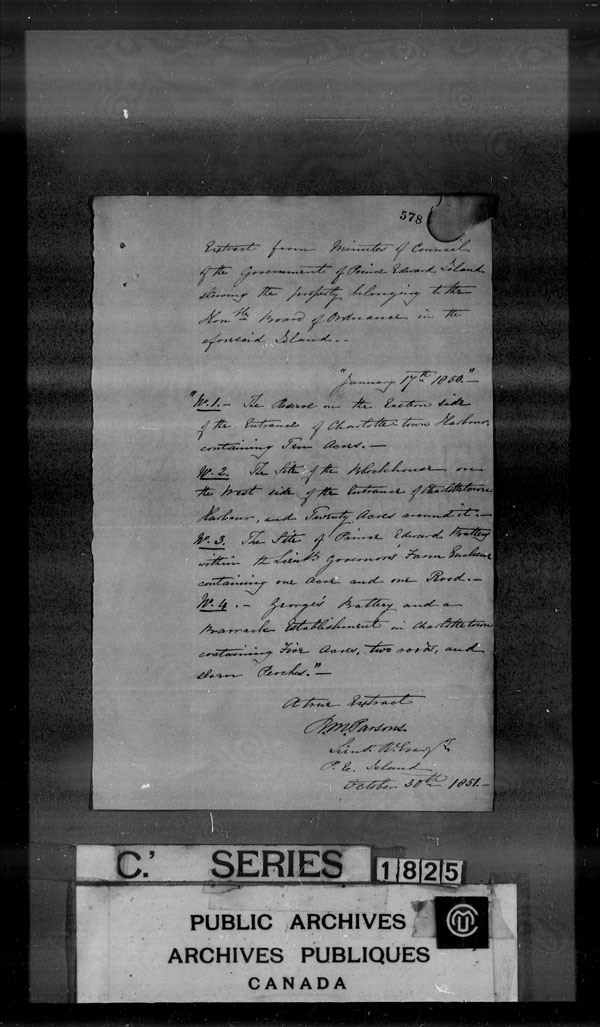 578
Extract from Minutes of Council
of the Government of Prince Edward Island
shewing the property belonging to the
Honble Board of Ordnance in the
aforesaid Island.-
"January 17th 1850."-
"No. 1.- The Reserve on the Eastern side
of the Entrance of Charlotte town Harbour,
containing Ten Acres.-
No. 2. The Site of the Blockhouse on
the West side of the Entrance of Charlottetown
Harbour, and Twenty Acres around it.-
No. 3. The Site of Prince Edward Battery
within the Lieut. Governor's Farm Enclosure
containing one Acre and one Rood.-
No. 4.- George's Battery and a
Barrack Establishment in Charlottetown
containing Five Acres, two roods, and
eleven Perches."-
A true Extract
Parsons
Lieut. Rl. Engrs.
P. E. Island
October 30th 1851.-
C.' SERIES 1825
PUBLIC ARCHIVES
ARCHIVES PUBLIQUES
CANADA